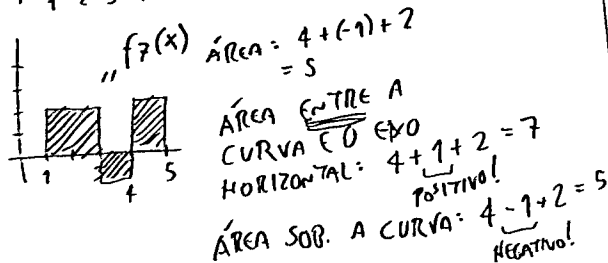 "f7(x)
ÁREA: 4+(-1)+2
= 5
ÁREA ENTRE A
CURVA E O EIXO
HORIZONTAL: 4+1+2=7
POSITIVO!
ÁREA SOB. A CURVA: 4-1+2=5
NEGATIVO!
1 4 5